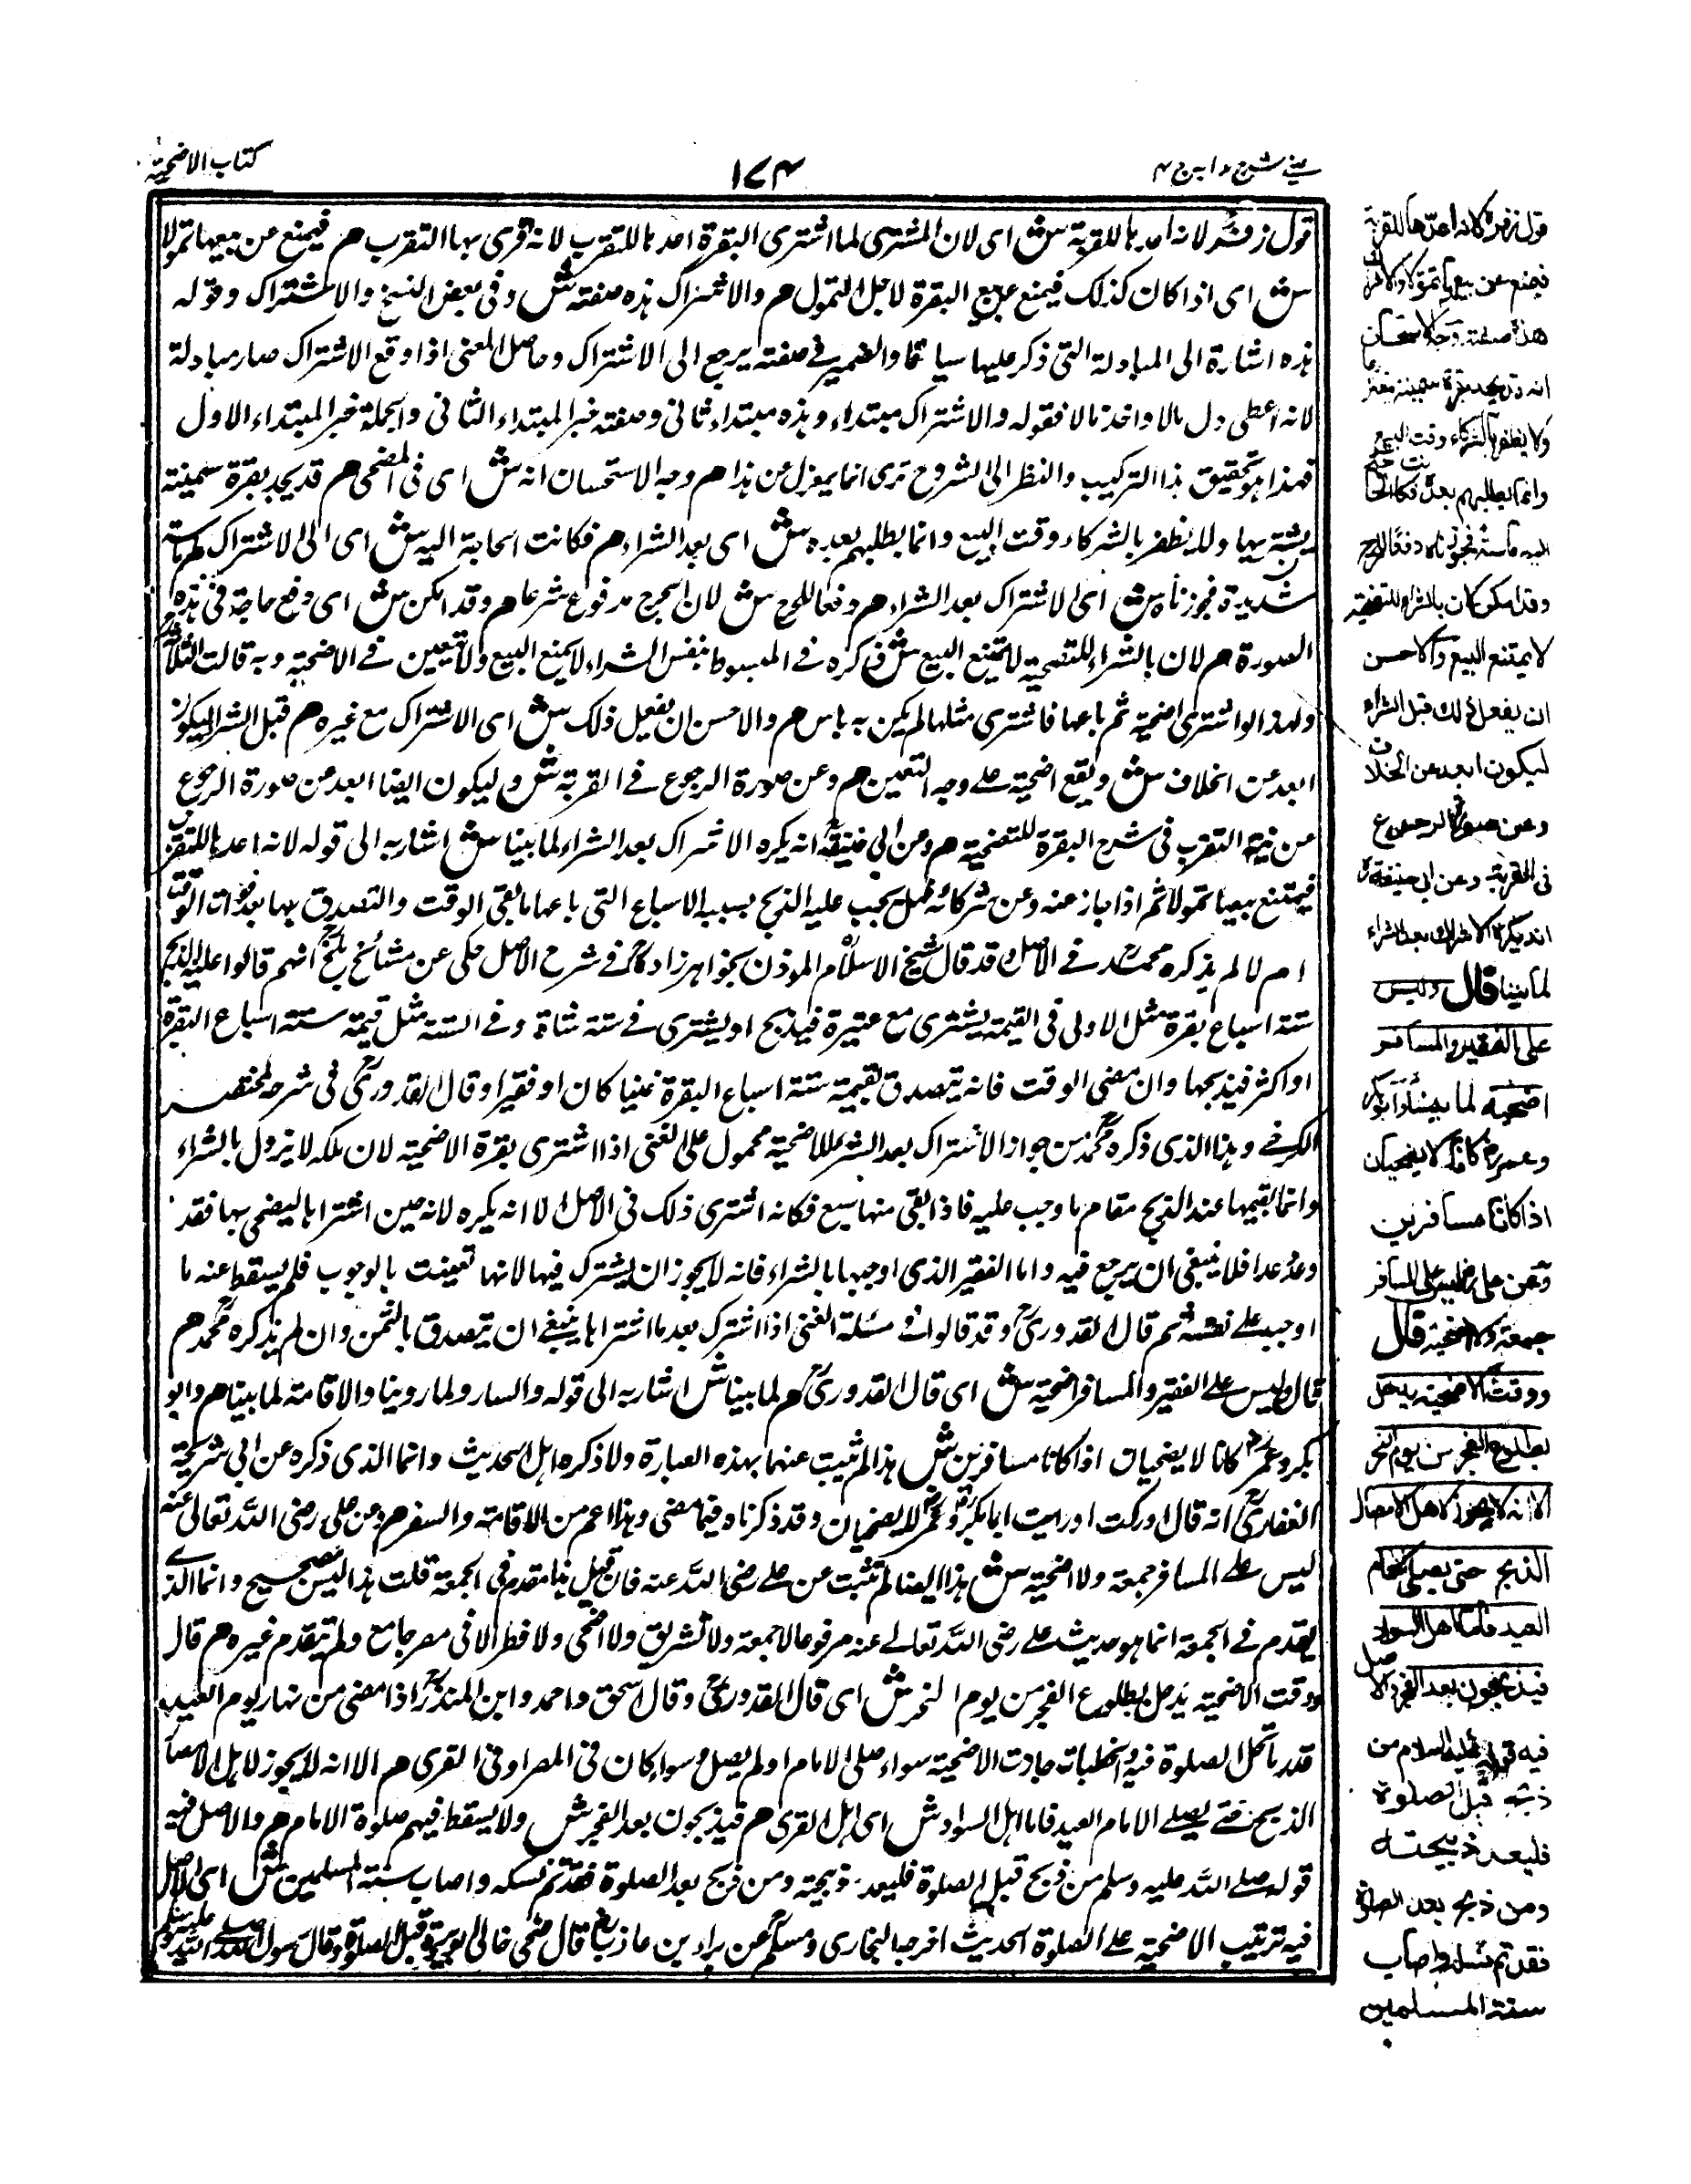 عینی شرح هدایه ج ۴
۱۷۴
کتاب الاضحیة
قول زفر لانه اعدها للقربة ش ای لان المشتری لما اشتری البقرة اعدها للتقرب لانه قری بها التقرب هم فیمنع عن بیعها تمولا
ش ای اذا کان کذلک فیمنع عن بیع البقرة لاجل التمول هم والاشتراک هذه صفته ش وفی بعض النسخ والاشتراک وقوله
هذه اشارة الی المبادلة التی ذکر علیها سیاقا والضمیر فی صفته یرجع الی الاشتراک وحاصل المعنی اذا وقع الاشتراک صار مبادلة
لانه اعطی مالا واخذ مالا فقوله والاشتراک مبتداء وهذه مبتداء ثانی وصفته خبر المبتداء الثانی والجملة خبر المبتداء الاول
فهذا هو تحقیق هذا الترکیب والنظر الی الشروح تری انها بمعزل عن هذا هم وجه الاستحسان انه ش ای فی المضحی هم قد یجد بقرة سمینة
یشتریها ولا یظفر بالشرکاء وقت البیع وانما یطلبهم بعده ش ای بعد الشراء هم فکانت الحاجة الیه ش ای الی الاشتراک هم ماسة
شدیدة فجوزناه ش ای الاشتراک بعد الشراء هم دفعا للحرج ش لان الحرج مدفوع شرعا هم وقد امکن ش ای دفع حاجة فی هذه
الصورة هم لان بالشراء للتضحیة لا یمتنع البیع ش ذکره فی المبسوط بنفس الشراء لا یمنع البیع ولا تتعین فی الاضحیة وبه قالت الثلاثة
ولهذا لو اشتری اضحیة ثم باعها فاشتری مثلها لم یکن به باس هم والاحسن ان یفعل ذلک ش ای الاشتراک مع غیره هم قبل الشراء لیکون
ابعد عن الخلاف ش ویقع اضحیة علی وجه التعین هم وعن صورة الرجوع فی القربة ش ولیکون ایضا ابعد من صورة الرجوع
عن نیة التقرب فی شرع البقرة للتضحیة هم وعن ابی حنیفة انه یکره الاشراک بعد الشراء لما بینا ش اشار به الی قوله لانه اعدها للتقرب
فیمتنع بیعها تمولا ثم اذا جاز عنه وعن شرکائه هل یجب علیه الذبح بسبب الاسباع التی باعها ما بقی الوقت والتصدق بها بعد فوات الوقت
ام لا لم یذکره محمد فی الاصل وقد قال شیخ الاسلام الموذن بخواهرزاده فی شرح الاصل حکی عن مشائخ بلخ انهم قالوا علیه الذبح
ستة اسباع بقرة مثل الاولی فی القیمة یشتری مع عتیرة فیذبح او یشتری فی ستة شاة وفی الستة مثل قیمة ستة اسباع البقرة
او اکثر فیذبحها وان مضی الوقت فانه یتصدق بقیمة ستة اسباع البقرة غنیا کان او فقیرا وقال القدوری فی شرحه لمختصر
الکرخی وهذا الذی ذکره محمد من جواز الاشتراک بعد الشراء للاضحیة محمول علی الغنی اذا اشتری بقرة الاضحیة لان ملکه لا یزول بالشراء
وانما یقیمها عند الذبح مقام ما وجب علیه فاذا بقی منها سبع فکانه اشتری ذلک فی الاصل الا انه یکره لانه حین اشتراها لیضحی بها فقد
وعد وعدا فلا ینبغی ان یرجع فیه واما الفقیر الذی اوجبها بالشراء فانه لا یجوز ان یشترک فیها لانها تعینت بالوجوب فلم یسقط عنه ما
اوجبه علی نفسه ثم قال القدوری وقد قالوا فی مسئلة الغنی اذا اشترک بعد ما اشتراها ینبغی ان یتصدق بالثمن وان لم یذکره محمد هم
قال ولیس علی الفقیر والمسافر اضحیة ش ای قال القدوری هم لما بینا ش اشار به الی قوله والیسار ولما روینا والاقامة لما بینا هم وابو
بکر وعمر کانا لا یضحیان اذا کانا مسافرین ش هذا لم یثبت عنهما بهذه العبارة ولا ذکره اهل الحدیث وانما الذی ذکره عن ابی شریحة
الغفاری انه قال ادرکت او رایت ابا بکر وعمر لا یضحیان وقد ذکرناه فیما مضی وهذا اعم من الاقامة والسفر هم وعن علی رضی الله تعالی عنه
لیس علی المسافر جمعة ولا اضحیة ش هذا ایضا لم تثبت عن علی رضی الله عنه فان قیل هذا مقدم فی الجمعة قلت هذا لیس بصحیح وانما الذی
یقدم فی الجمعة انما هو حدیث علی رضی الله تعالی عنه مرفوعا لا جمعة ولا تشریق ولا اضحی ولا فطر الا فی مصر جامع ولم یتقدم غیره هم قال
ووقت الاضحیة یدخل بطلوع الفجر من یوم النحر ش ای قال القدوری وقال اسحق واحمد وابن المنذر اذا مضی من نهار یوم العید
قدر ما تحل الصلوة فیه والخطبات جازت الاضحیة سواء صلی الامام او لم یصل وسواء کان فی المصر او فی القری هم الا انه لا یجوز لاهل الامصار
الذبح حتی یصلی الامام العید فاما اهل السواد ش ای اهل القری هم فیذبحون بعد الفجر ش ولا یسقط فیهم صلوة الامام هم والاصل فیه
قوله صلی الله علیه وسلم من ذبح قبل الصلوة فلیعد ذبیحته ومن ذبح بعد الصلوة فقد تم نسکه واصاب سنة المسلمین ش ای الاصل
فیه ترتیب الاضحیة علی الصلوة الحدیث اخرجه البخاری ومسلم عن براء بن عازب قال ضحی خالی ابو بردة قبل الصلوة وقال رسول الله صلی الله علیه وسلم
قول زفر لانه اعدها للقربة
فیمنع عن بیعها تمولا والاشتراک
هذا صفته وجه الاستحسان
انه قد یجد بقرة سمینة یشتریها
ولا یظفر بالشرکاء وقت البیع
وانما یطلبهم بعده فکانت الحاجة
الیه ماسة فجوزناه دفعا للحرج
وقد امکن لان بالشراء للتضحیة
لا یمتنع البیع والاحسن
ان یفعل ذلک قبل الشراء
لیکون ابعد عن الخلاف
وعن صورة الرجوع
فی القربة وعن ابی حنیفة
انه یکره الاشراک بعد الشراء
لما بینا قال ولیس
علی الفقیر والمسافر
اضحیة لما بینا وابوبکر
وعمر کانا لا یضحیان
اذا کانا مسافرین
وعن علی لیس علی المسافر
جمعة ولا اضحیة قال
ووقت الاضحیة یدخل
بطلوع الفجر من یوم النحر
الا انه لا یجوز لاهل الامصار
الذبح حتی یصلی الامام
العید فاما اهل السواد
فیذبحون بعد الفجر والاصل
فیه قوله علیه السلام من
ذبح قبل الصلوة
فلیعد ذبیحته
ومن ذبح بعد الصلوة
فقد تم نسکه واصاب
سنة المسلمین